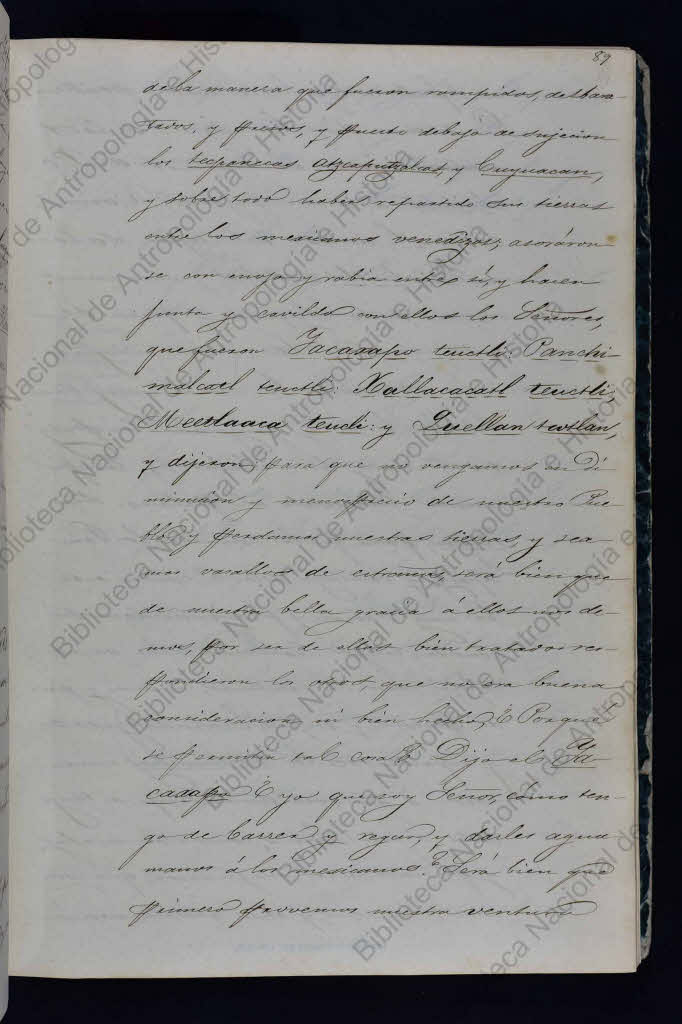 89
de la manera que fueron rompidos, desbara-
tados, y presos, y puesto debajo de sujecion
los tecpanecas Atzcaputzalcas, y Cuyuacan,
y sobre todo haber repartido sus tierras
entre los mexicanos venedizos; asoráron
se con enojo y rabia entre sí, y hacen
junta y cavildo con ellos los Señores,
que fueron Jacaxapo teuctli: Panchi-
malcatl teuctli: Xallacacatl teuctli,
Meetlaaca teucli: y Quellan toctlan,
y dijeron; para que no vengamos en di
minucion y menosprecio de nuestro Pue
blo, y perdamos nuestras tierras, y sea
mos vasallos de estraños, será bien que
de nuestra bella gracia á ellos nos de
mos, por ser de ellos bien tratados res-
pondieron los otros, que no era buena
consideracion ni bien hecho, ¿Porqué
se permitia tal cosa? Dijo el Ja
caxapo ¿yo que soy Señor, cómo ten-
go de barrer y regar, y darles agua
manos á los mexicanos? Será bien que
primero provemos nuestra ventura
Biblioteca Nacional de Antropología e Historia